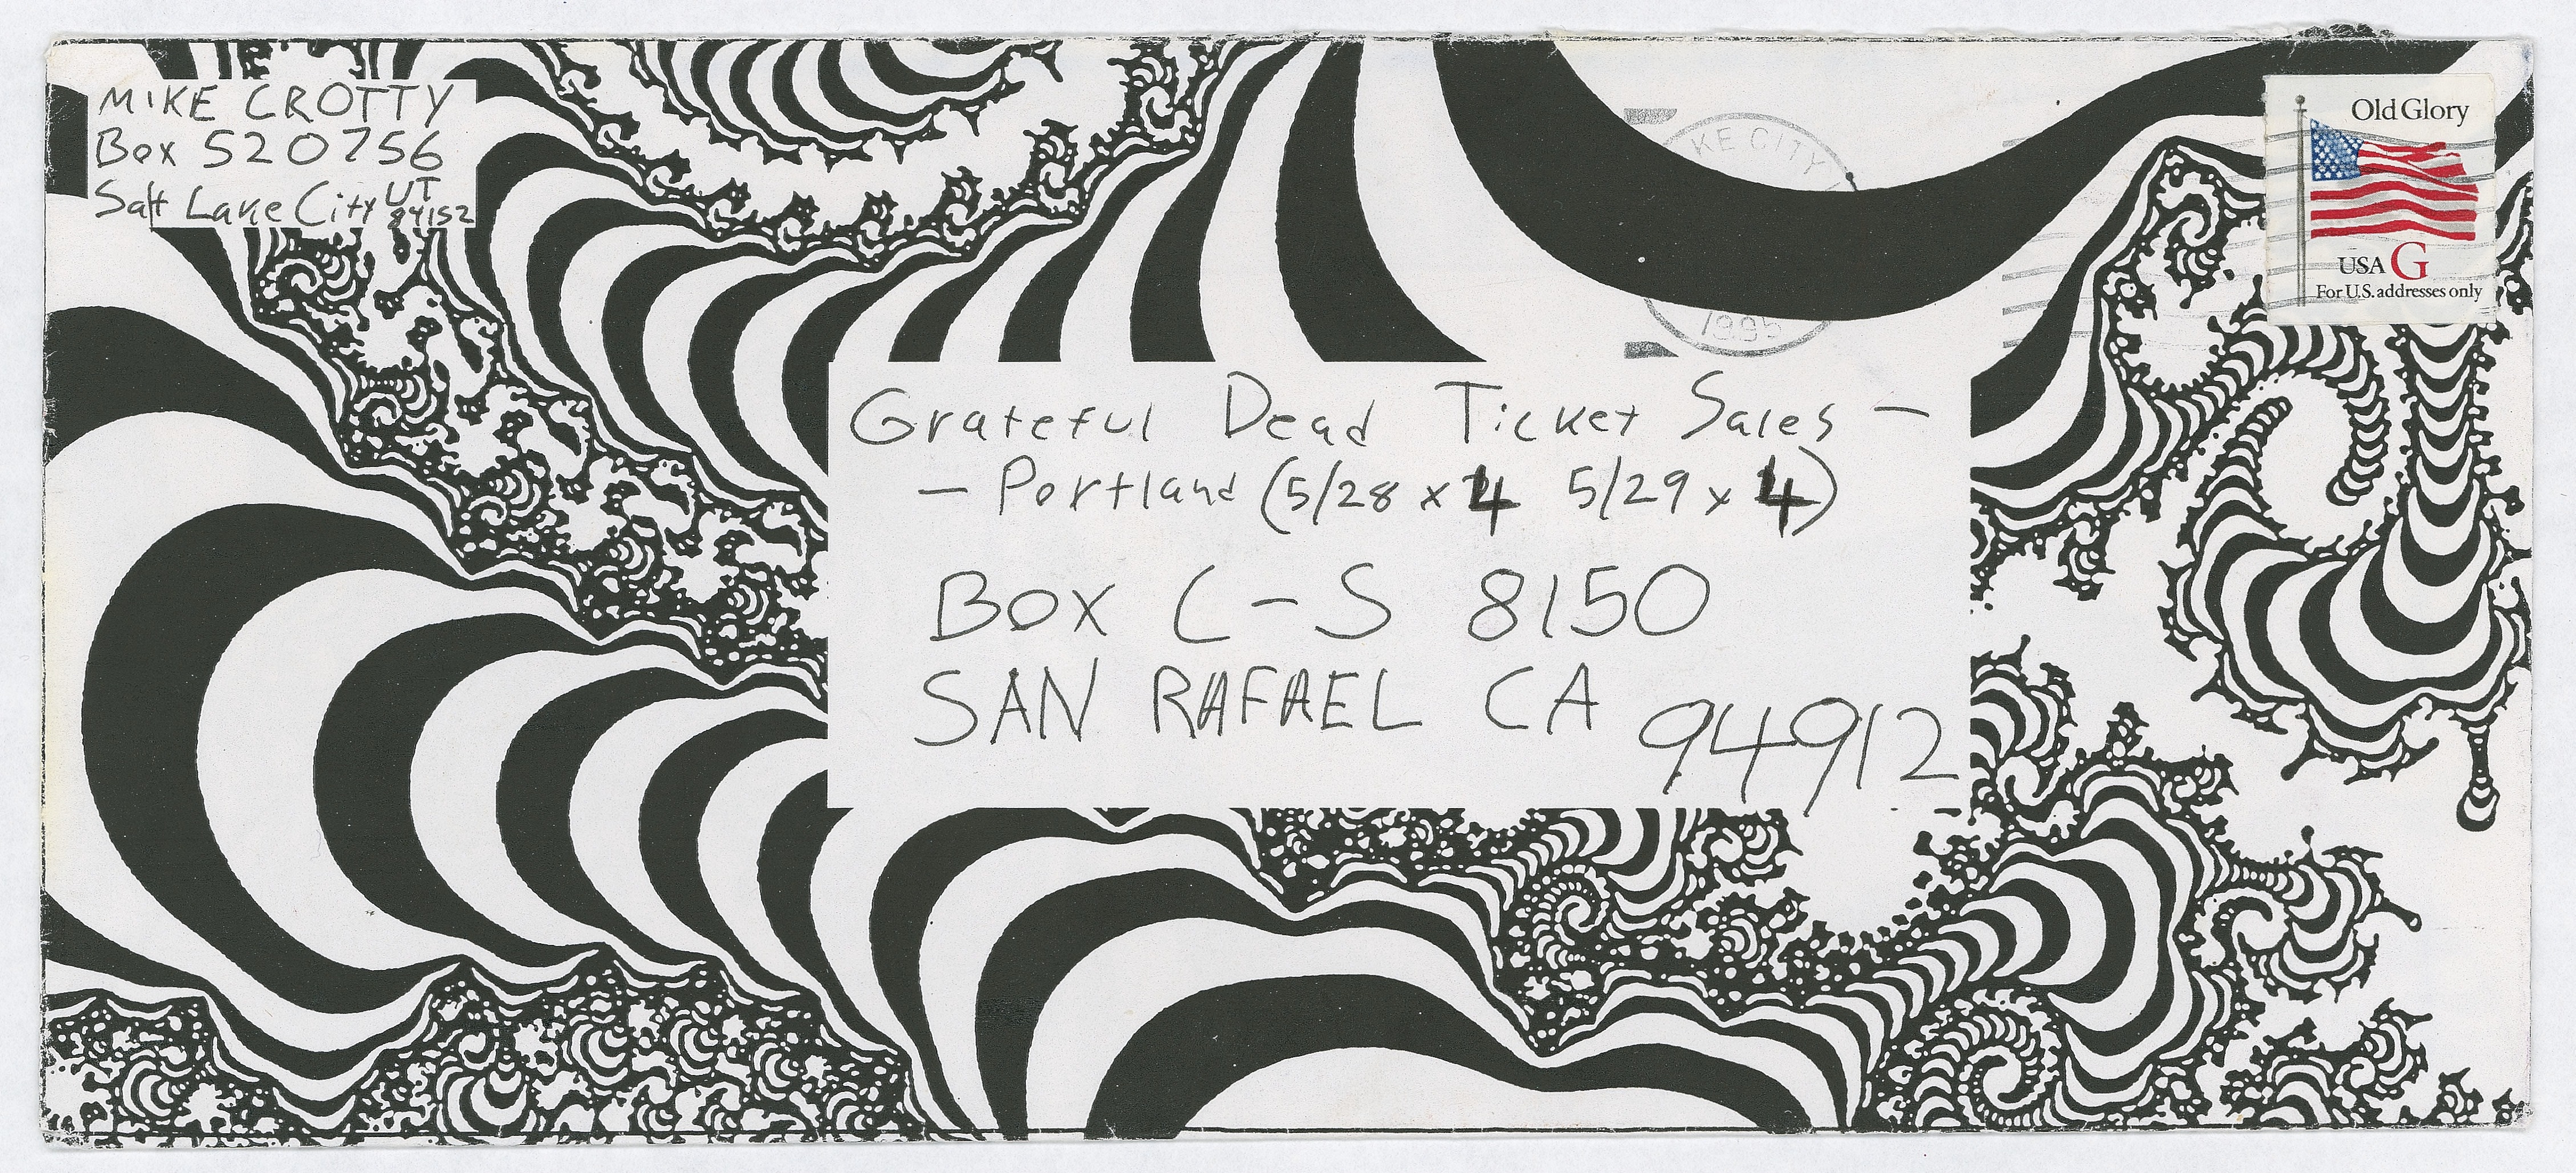 MIKE CROTTY
Box 520756
Salt Lake City UT 84152
KE CITY
1995
Old Glory
USA G
For U.S. addresses only
Grateful Dead Ticket Sales —
— Portland (5/28 x 4 5/29 x 4)
BOX C-S 8150
SAN RAFAEL CA 94912